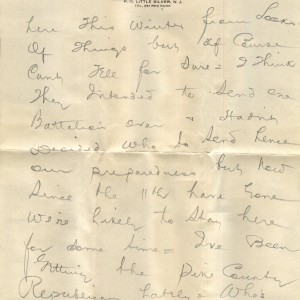 P.O. LITTLE SILVER, N.J.
TEL. 251 RED BANK
here this Winter from Looks
Of Things but Of Course
Cant Tell for Sure. I Think
They Intended to Send one
Battalion over & Hadnt
Decided who to Send hence
our preparedness but now
Since the 11th have Gone
We're likely to Stay here
for some time. I've Been
Getting the Pine County
Republican lately. Who's